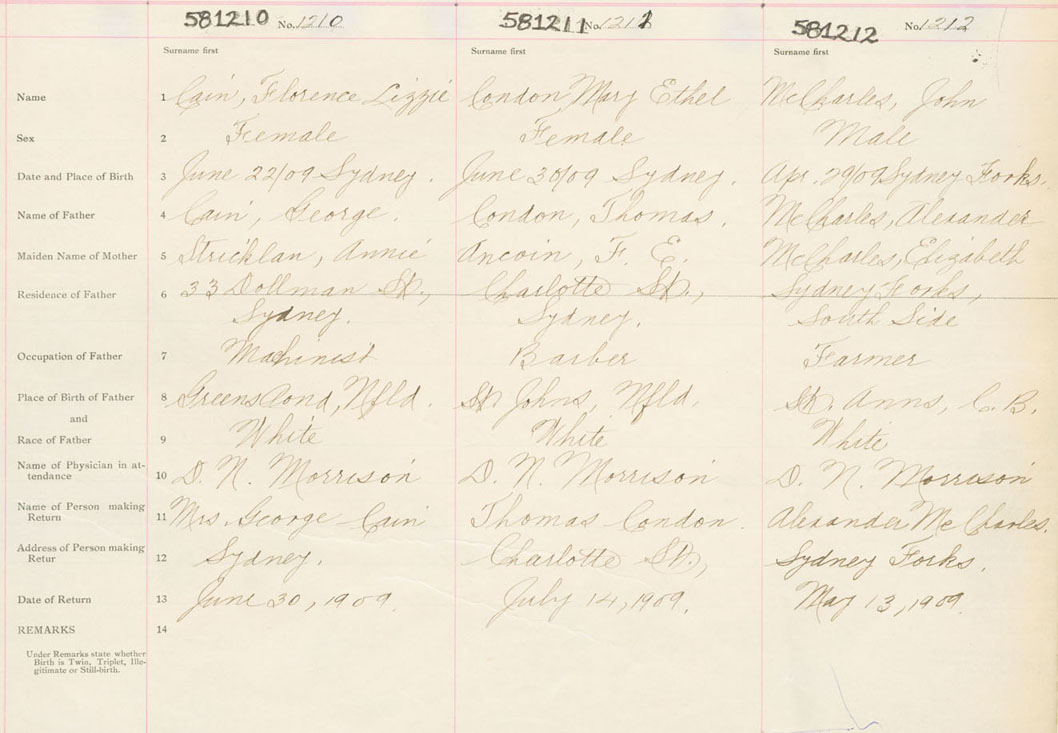 581210 No. 1210 581211 No. 1211 581212 No. 1212
Surname first Surname first Surname first
Name 1 Cain, Florence Lizzie Condon Mary Ethel McCharles, John
Sex 2 Female Female Male
Date and Place of Birth 3 June 22/09 Sydney. June 30/09 Sydney. Apr. 29/09 Sydney Forks.
Name of Father 4 Cain, George. Condon, Thomas. McCharles, Alexander
Maiden Name of Mother 5 Stricklan, Annie Ancoin, F. E. McCharles, Elizabeth
Residence of Father 6 33 Dollman St., Charlotte St., Sydney Forks,
Sydney. Sydney. South Side
Occupation of Father 7 Machinist Barber Farmer
Place of Birth of Father 8 Greens Pond, Nfld. St Johns, Nfld. St. Anns, C. B.
and
Race of Father 9 White White White
Name of Physician in at-
tendance 10 D. N. Morrison D. N. Morrison D. N. Morrison
Name of Person making
Return 11 Mrs. George Cain Thomas Condon. Alexander McCharles.
Address of Person making
Retur 12 Sydney. Charlotte St., Sydney Forks.
Date of Return 13 June 30, 1909. July 14, 1909. May 13, 1909.
REMARKS 14
Under Remarks state whether
Birth is Twin, Triplet, Ille-
gitimate or Still-birth.